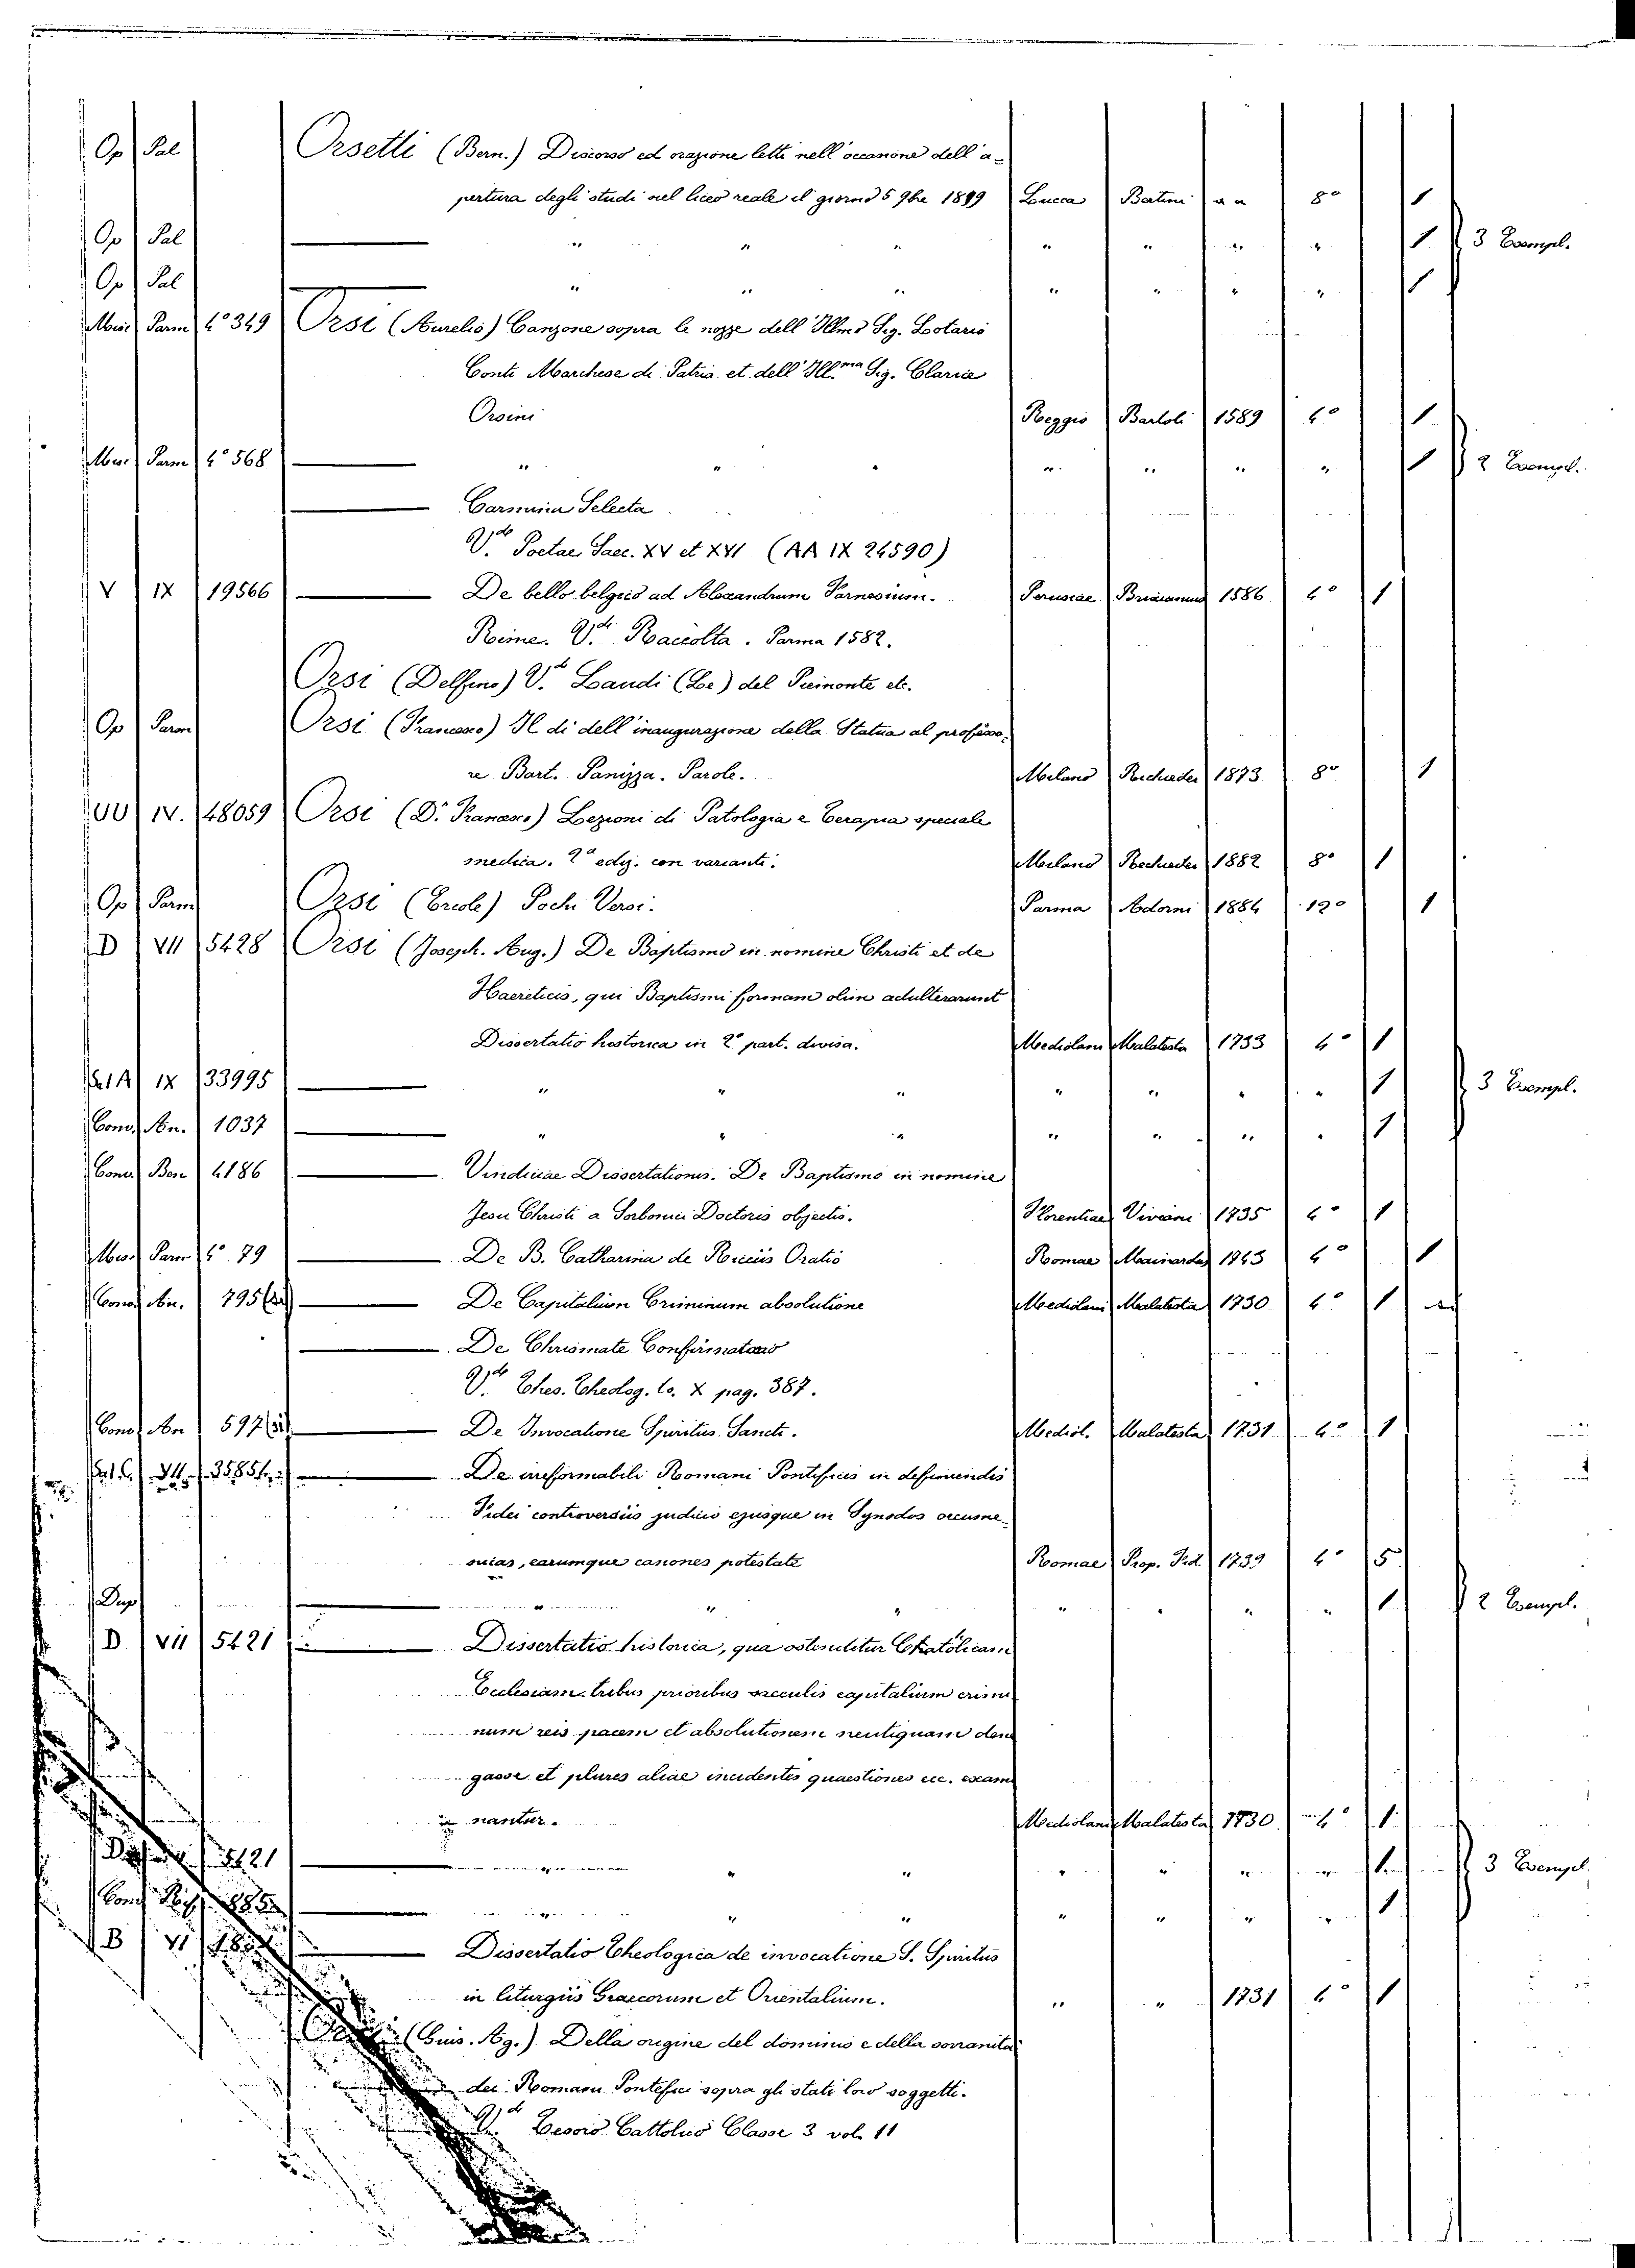 Op Pal Orsetli (Bern.) Discorso ed orazione letti nell'occasione dell'a-
pertura degli studi nel liceo reale il giorno 5 9bre 1819 Lucca Bertini " " 8º 1
Op Pal " " " " " " " 1 3 Esempl.
Op Pal " " " " " " " 1
Misc. Parm 4º 349 Orsi (Aurelio) Canzone sopra le nozze dell'Illmo Sig. Lotario
Conti Marchese di Patria et dell'Ill.ma Sig. Clarice
Orsini Reggio Bartoli 1589 4º 1
Misc. Parm 4º 568 " " " " " " " 1 2 Esempl.
Carmina Selecta
V.di Poetae Saec. XV et XVI (AA IX 24590)
V IX 19566 De bello belgico ad Alexandrum Farnesium. Perusiae 1586 4º 1
Rime. V.di Raccolta. Parma 1582.
Orsi (Delfino) V.di Laudi (Le) del Piemonte etc.
Op Parm Orsi (Francesco) Il di dell'inaugurazione della Statua al professo-
re Bart. Panizza. Parole. Milano Rechiedei 1873 8º 1
UU IV. 48059 Orsi (D.r Francesco) Lezioni di Patologia e Terapia speciale
medica. 2ª ediz. con varianti. Milano Rechiedei 1882 8º 1
Op Parm Orsi (Ercole) Pochi Versi. Parma Adorni 1884 12º 1
D VII 5428 Orsi (Joseph. Aug.) De Baptismo in nomine Christi et de
Haereticis, qui Baptismi formam olim adulterarunt
Dissertatio historica in 2 part. divisa. Mediolani Malatesta 1733 4º 1
Sal A IX 33995 " " " " " " " 1 3 Esempl.
Conv. An. 1037 " " " " " " " 1
Conv. Ben 4186 Vindiciae Dissertationis. De Baptismo in nomine
Jesu Christi a Sorbonici Doctoris objectis. Florentiae Viviani 1735 4º 1
Misc. Parm 4º 79 De B. Catharina de Ricciis Oratio Romae Mainardus 4º 1
Conv. An. 795 De Capitalium Criminum absolutione Mediolani Malatesta 1730 4º 1
De Chrismate Confirmatorio
V.di Thes. Theolog. to. X pag. 387.
Conv. An 597 De Invocatione Spiritus Sancti. Mediol. Malatesta 1731 4º 1
De irreformabili Romani Pontificis in definiendis
Fidei controversiis judicio ejusque in Synodos oecume-
nicas, earumque canones potestate Romae Prop. Fid. 1739 4º 5
Dup " " " " " " " 1 2 Esempl.
D VII 5421 Dissertatio historica, qua ostenditur Chatolicam
Ecclesiam tribus prioribus saeculis capitalium crimi
num reis pacem et absolutionem neutiquam dene
gasse et plures aliae incidentes quaestiones ecc. exami
nantur. Mediolani Malatesta 1730 4º 1
5421 " " " " " " " 1 3 Esempl.
Conv " " " " " " " 1
B VI Dissertatio Theologica de invocatione S. Spiritus
in liturgiis Graecorum et Orientalium. " " 1731 4º 1
(Gius. Ag.) Della origine del dominio e della sovranità
dei Romani Pontefici sopra gli stati loro soggetti.
V.di Tesoro Cattolico Classe 3 vol. 11